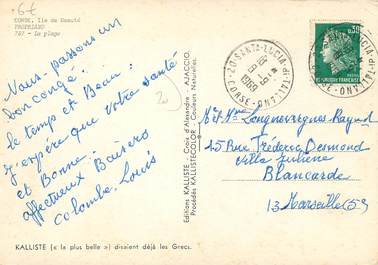 6€
CORSE, Ile de Beauté
PROPRIANO
787 - La plage
Nous passons un
bon congé.
le temps et Beau.
J'espère que votre santé
et Bonne.
affectueux Baisers
colombe. Louis
KALLISTE (« la plus belle ») disaient déjà les Grecs.
Editions KALLISTE - Cours d'Alexandre - AJACCIO.
Procédés KALLISTECOLOR - Couleurs Naturelles.
20 SANTA-LUCIA-DI-TALLANO
CORSE
1969
0,30
Mr Me Longnevergnes Raynd
15 Rue Frédéric Desmond
Villa Juliene
Blancarde
13 Marseille (5e)